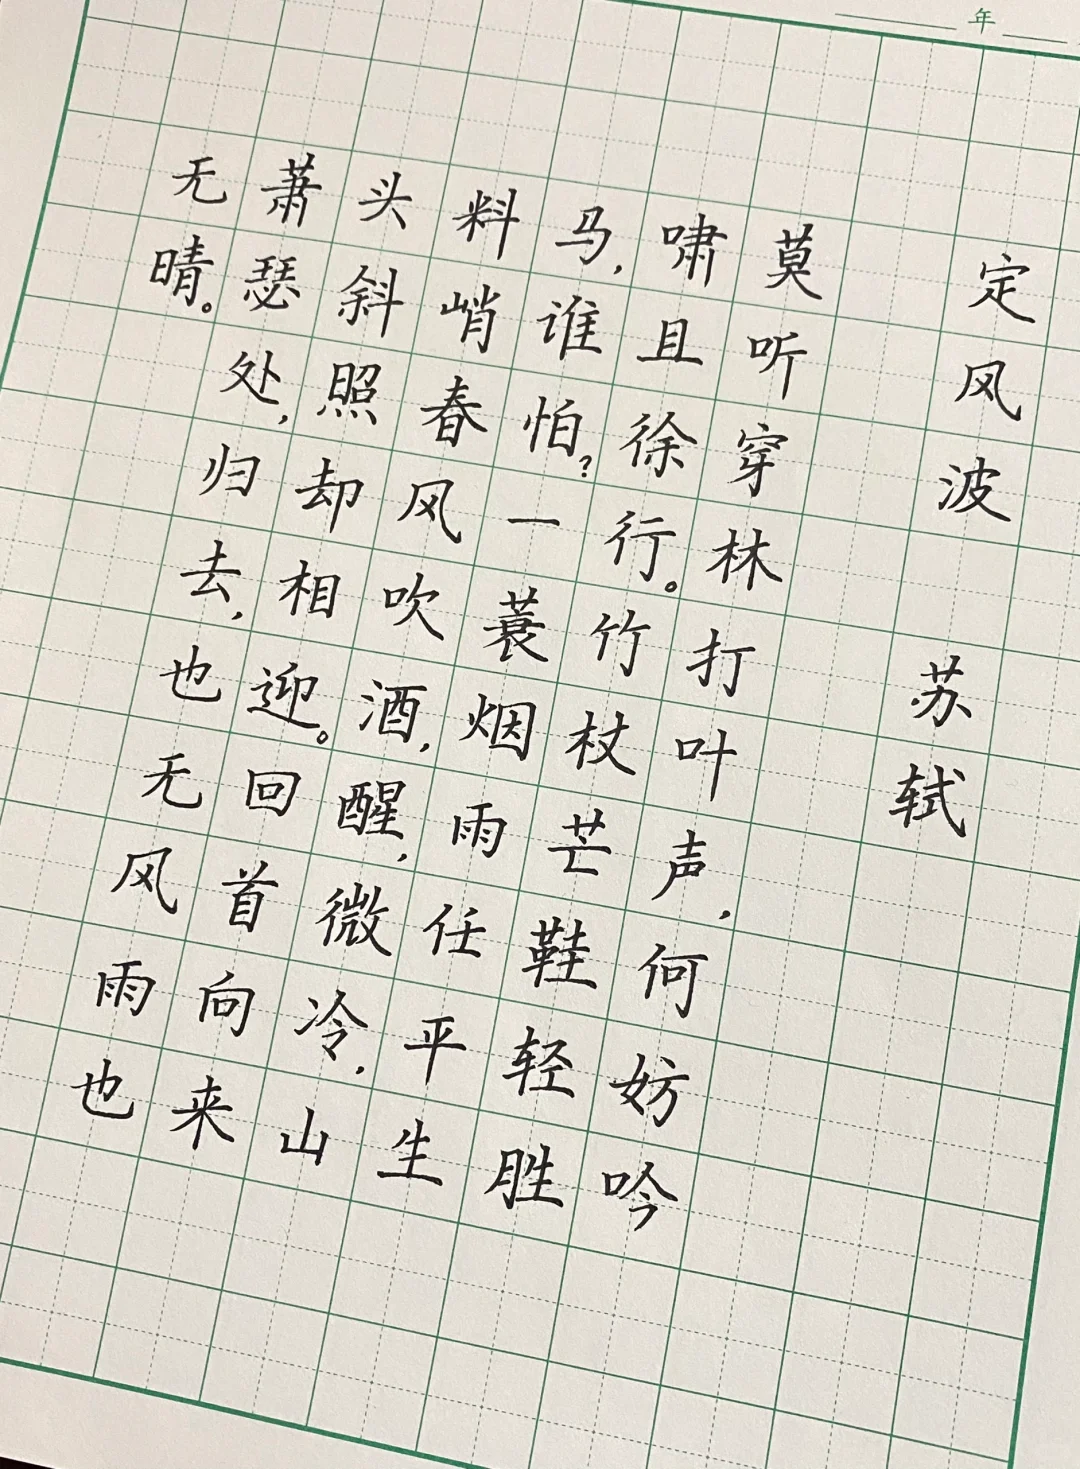 年
定风波 苏轼
莫听穿林打叶声,何妨吟
啸且徐行。竹杖芒鞋轻胜
马,谁怕?一蓑烟雨任平生
料峭春风吹酒醒,微冷,山
头斜照却相迎。回首向来
萧瑟处,归去,也无风雨也
无晴。